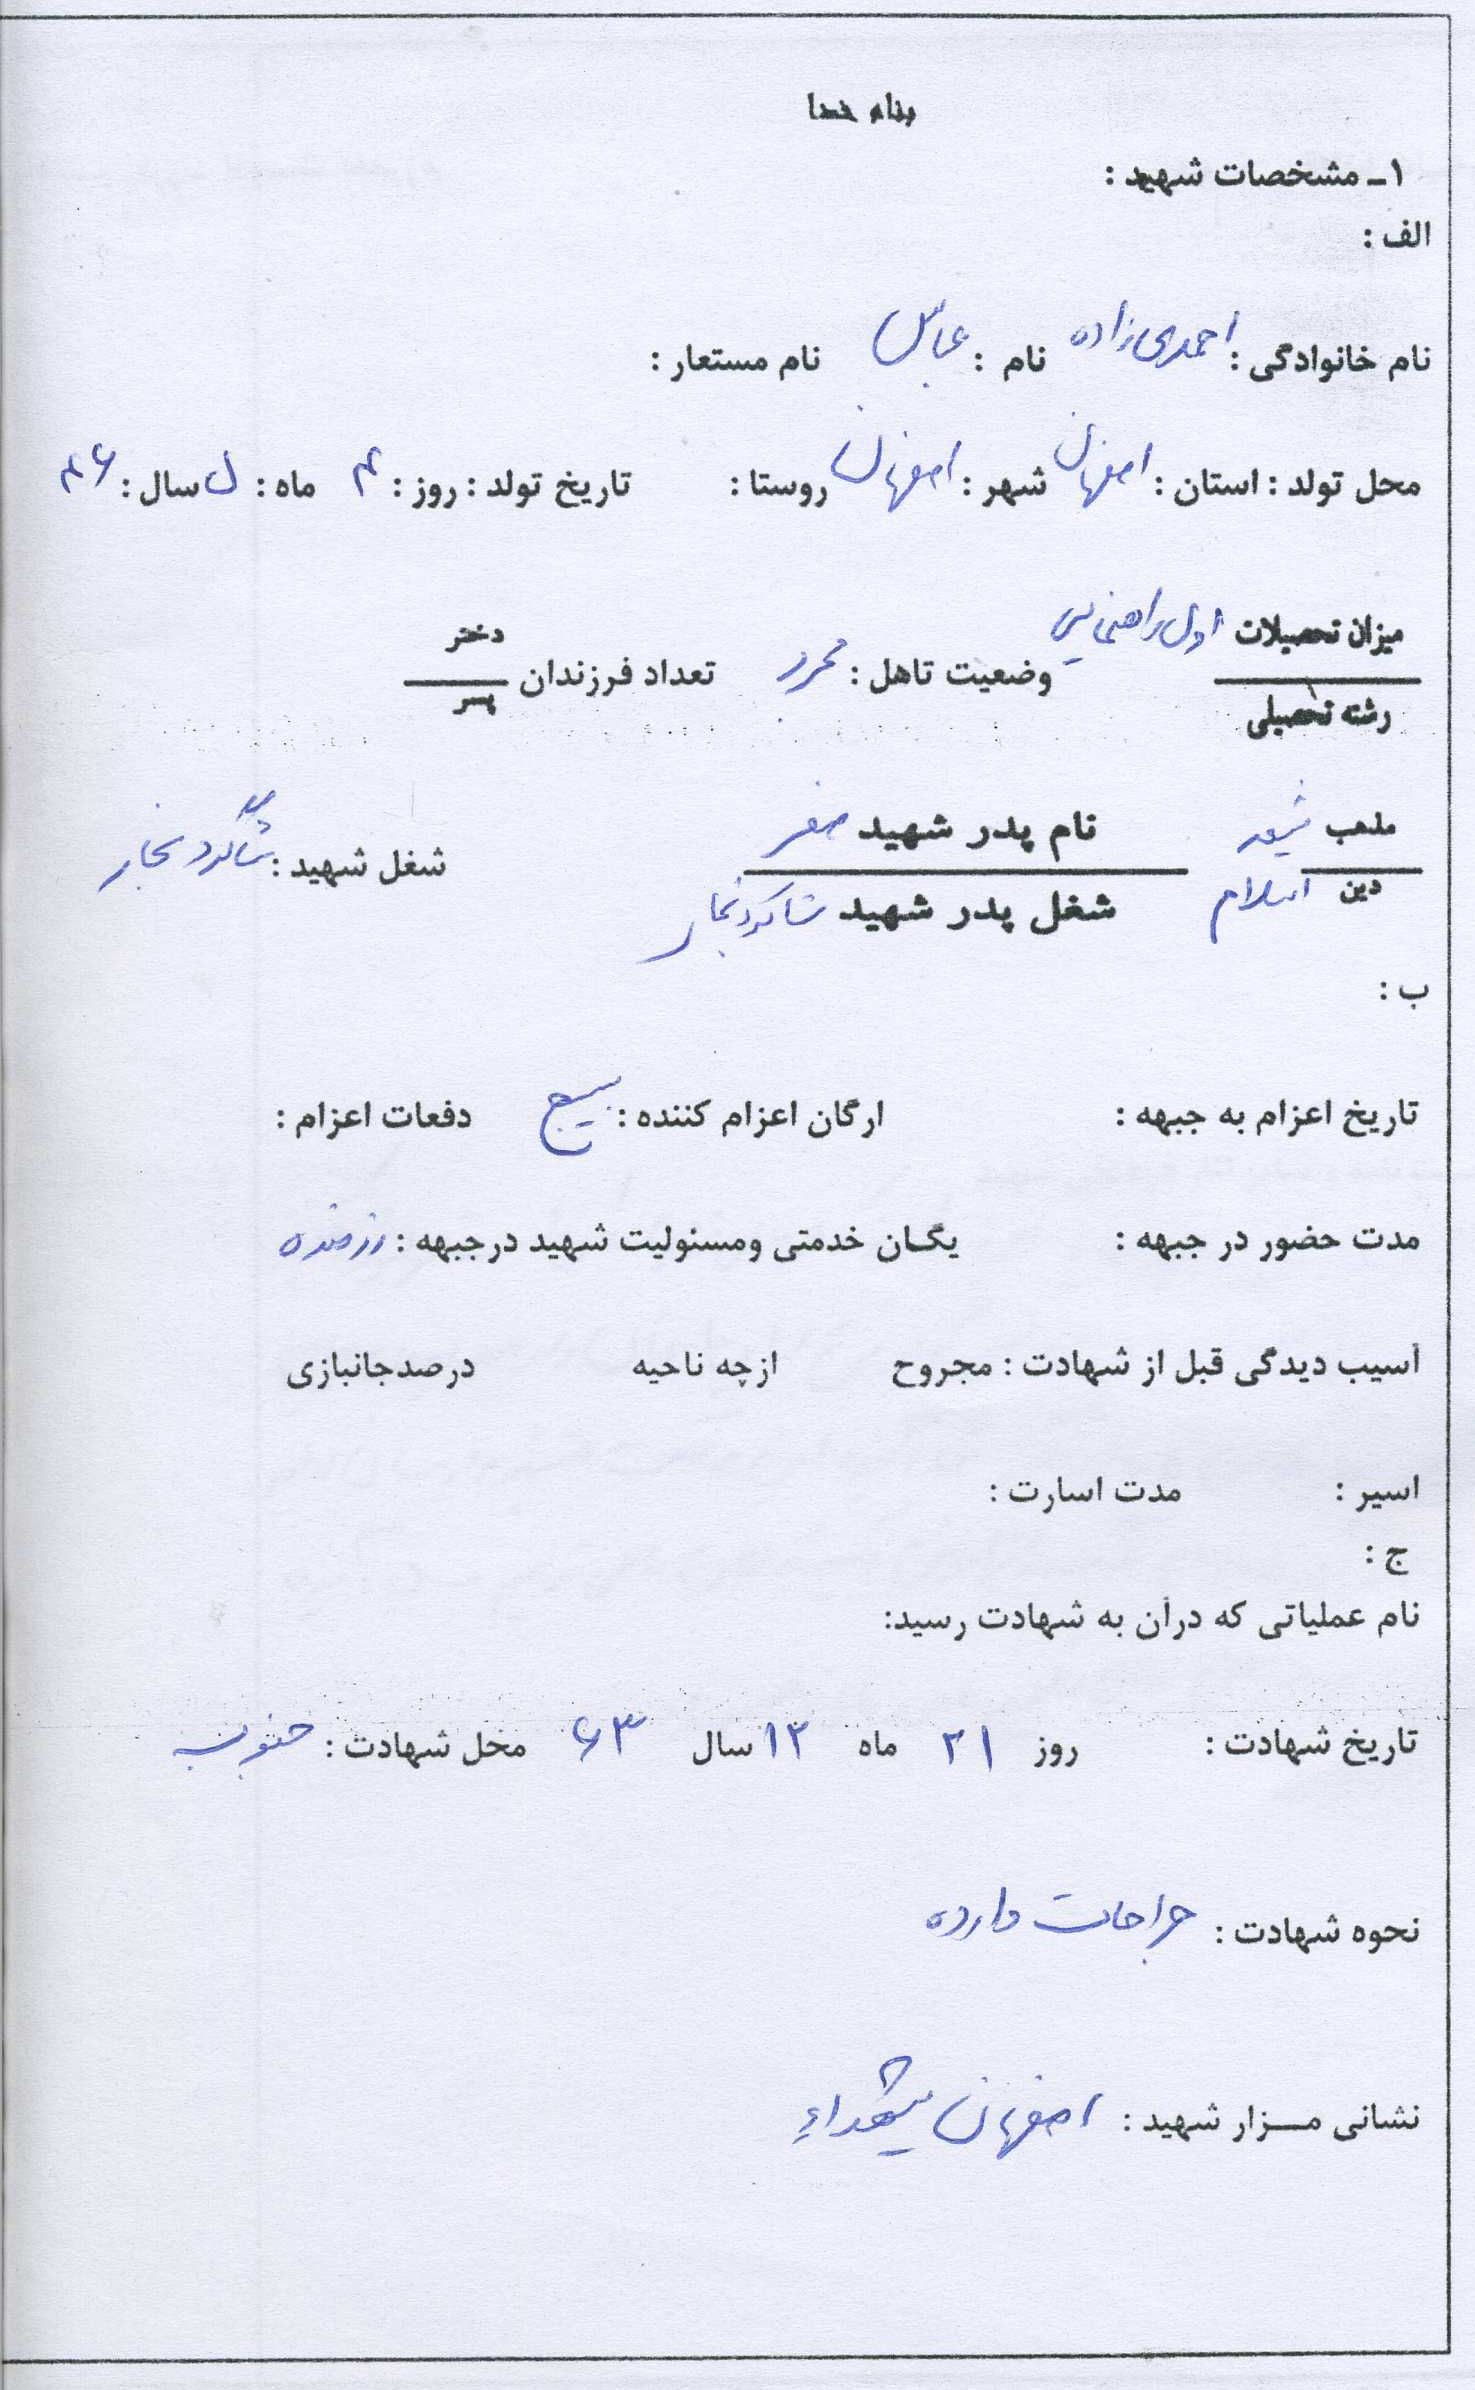 بنام خدا
۱ـ مشخصات شهید :
الف :
نام خانوادگی : احمدی‌زاده نام : عباس نام مستعار :
محل تولد : استان : اصفهان شهر : اصفهان روستا : تاریخ تولد : روز : ۴ ماه : سال : ۴۶
میزان تحصیلات اول راهنمایی
رشته تحصیلی
وضعیت تاهل : مجرد تعداد فرزندان
دختر
پسر
مذهب شیعه
دین اسلام
نام پدر شهید صفر
شغل پدر شهید شاگرد نجار
شغل شهید : شاگرد نجار
ب :
تاریخ اعزام به جبهه : ارگان اعزام کننده : بسیج دفعات اعزام :
مدت حضور در جبهه : یگان خدمتی ومسئولیت شهید درجبهه : رزمنده
آسیب دیدگی قبل از شهادت : مجروح ازچه ناحیه درصدجانبازی
اسیر : مدت اسارت :
ج :
نام عملیاتی که درآن به شهادت رسید:
تاریخ شهادت : روز ۲۱ ماه ۱۲ سال ۶۳ محل شهادت : جنوب
نحوه شهادت : جراحات وارده
نشانی مـزار شهید : اصفهان